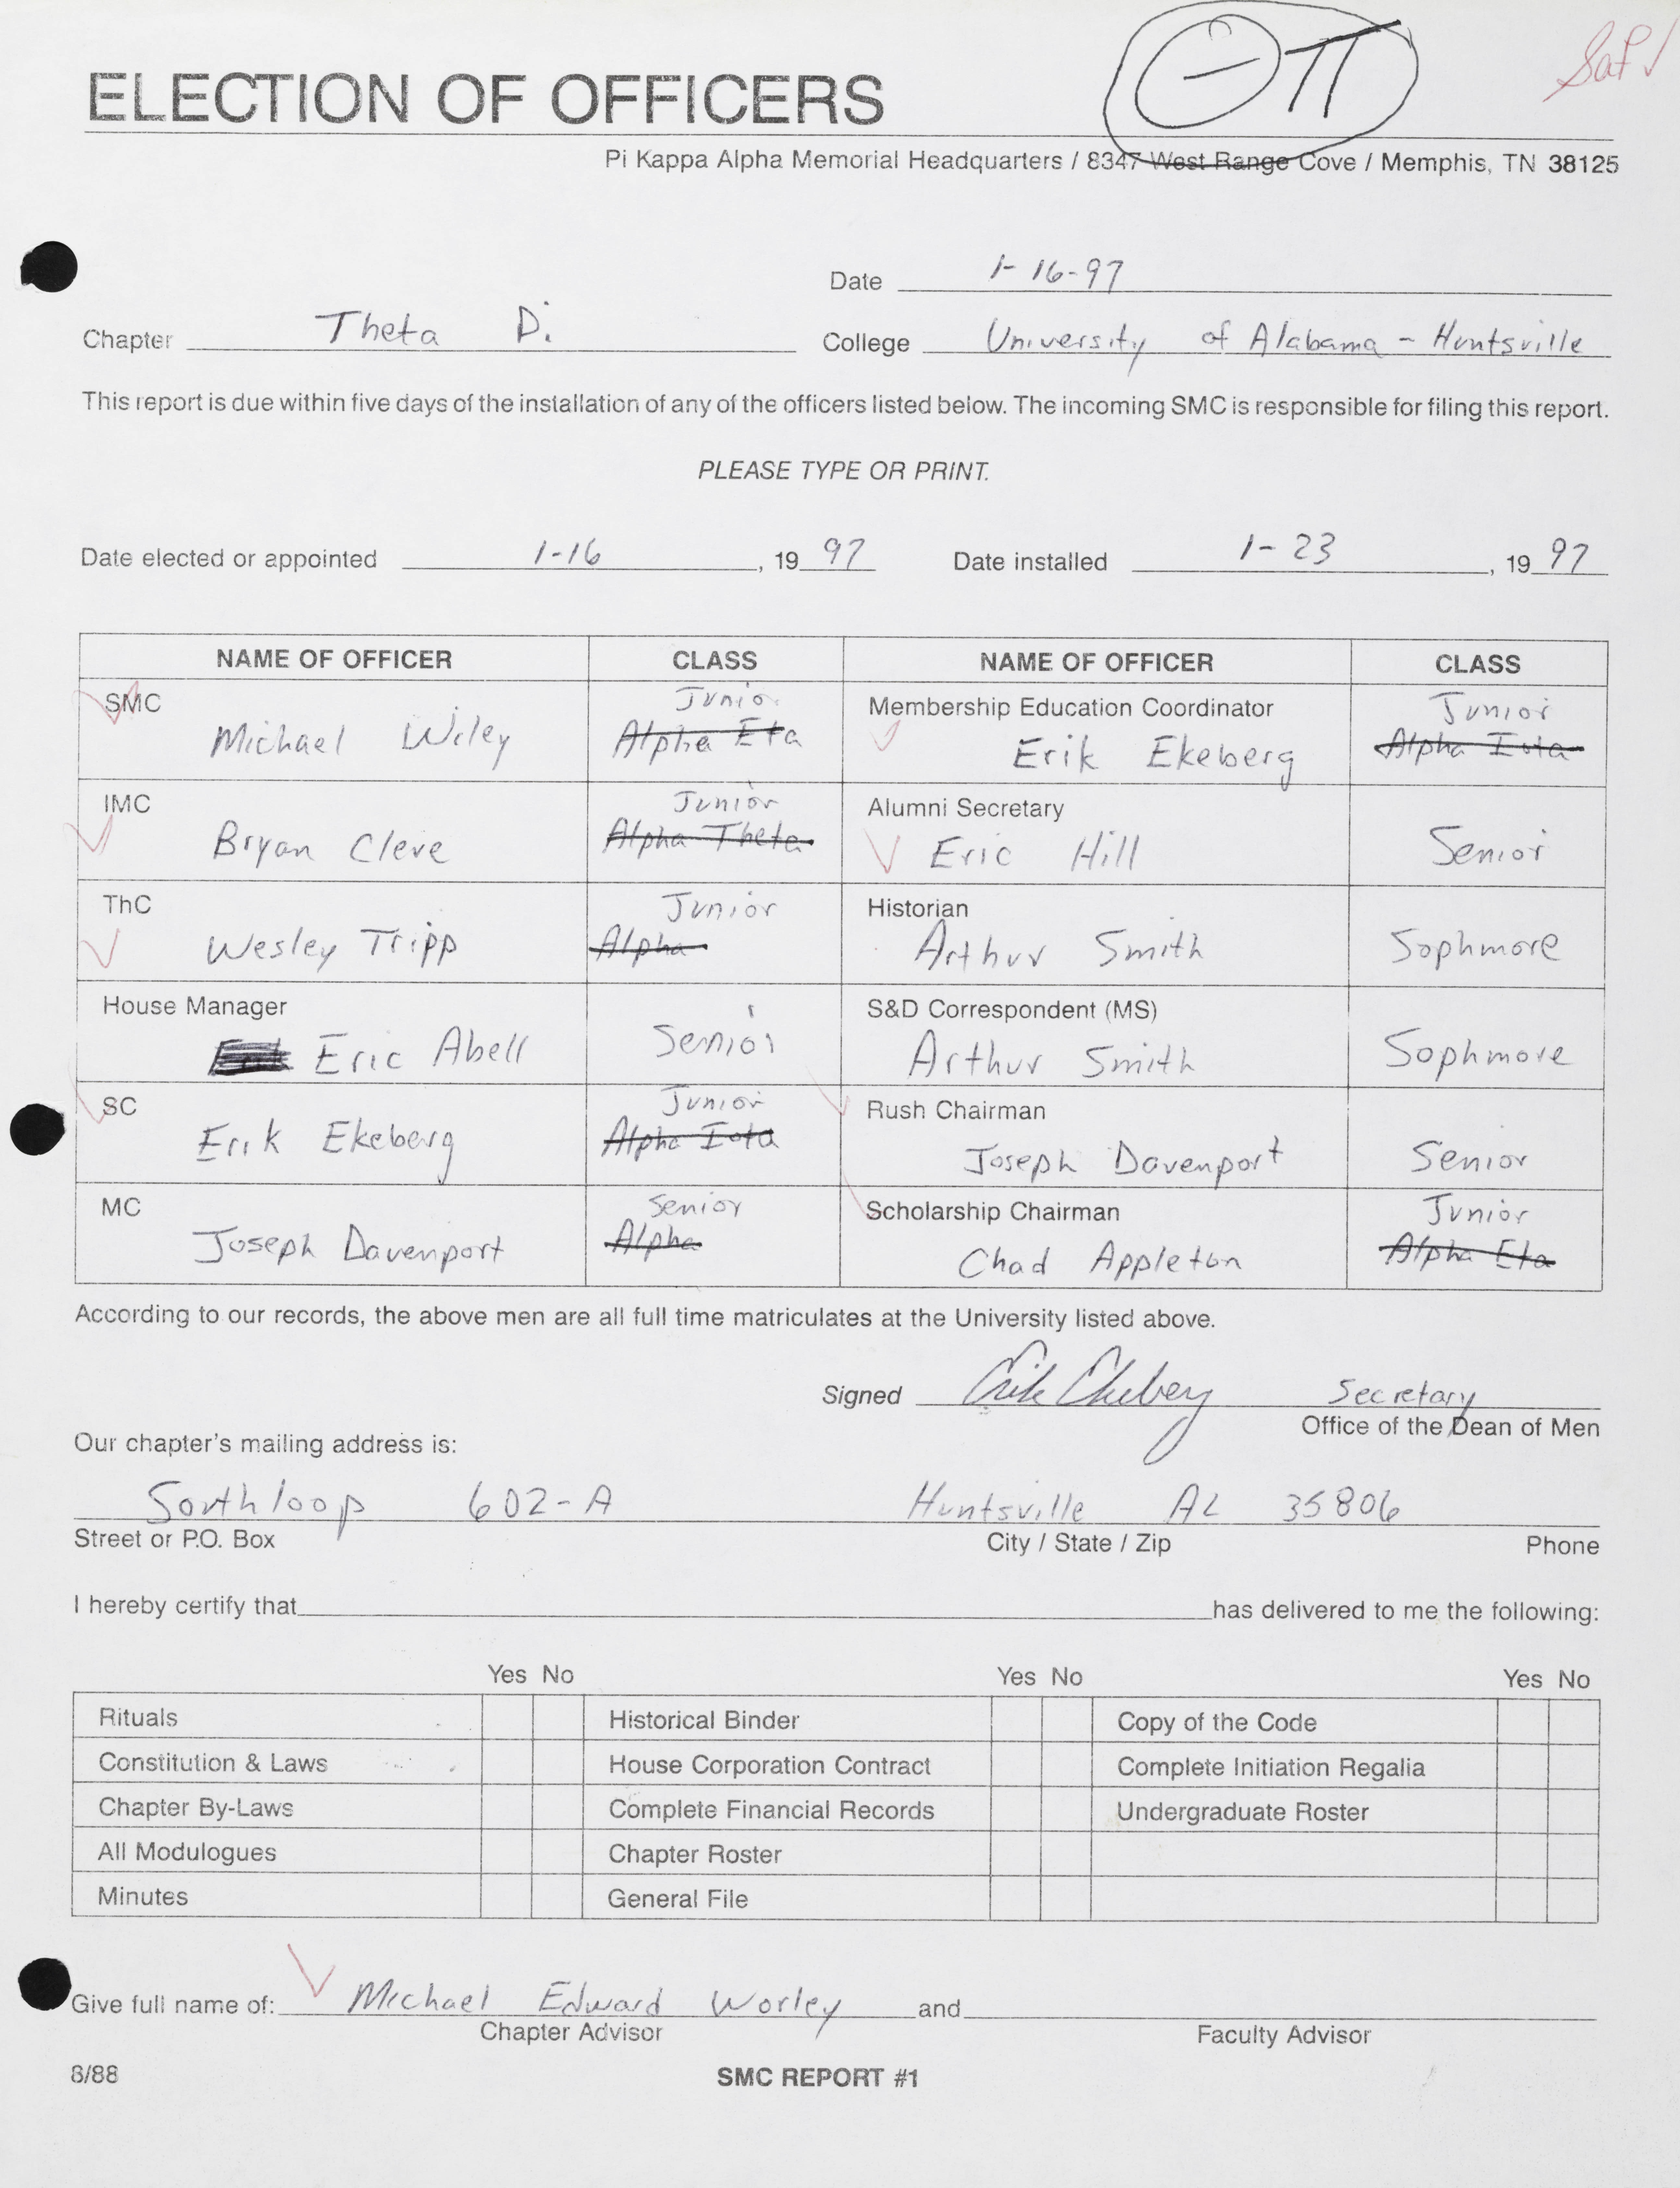 ΘΠ
ELECTION OF OFFICERS
Pi Kappa Alpha Memorial Headquarters / 8347 West Range Cove / Memphis, TN 38125
Date 1-16-97
Chapter Theta Pi College University of Alabama - Huntsville
This report is due within five days of the installation of any of the officers listed below. The incoming SMC is responsible for filing this report.
PLEASE TYPE OR PRINT.
Date elected or appointed 1-16, 19 97 Date installed 1-23, 19 97
NAME OF OFFICER CLASS NAME OF OFFICER CLASS
SMC Junior Membership Education Coordinator Junior
Michael Wiley Alpha Eta Erik Ekeberg Alpha Iota
IMC Junior Alumni Secretary
Bryan Cleve Alpha Theta Eric Hill Senior
ThC Junior Historian
Wesley Tripp Alpha Arthur Smith Sophmore
House Manager S&D Correspondent (MS)
Eric Abell Senior Arthur Smith Sophmore
SC Junior Rush Chairman
Erik Ekeberg Alpha Iota Joseph Davenport Senior
MC Senior Scholarship Chairman Junior
Joseph Davenport Alpha Chad Appleton Alpha Eta
According to our records, the above men are all full time matriculates at the University listed above.
Signed Erik Ekeberg Secretary
Office of the Dean of Men
Our chapter's mailing address is:
Southloop 602-A Huntsville AL 35806
Street or P.O. Box City / State / Zip Phone
I hereby certify that has delivered to me the following:
Yes No Yes No Yes No
Rituals Historical Binder Copy of the Code
Constitution & Laws House Corporation Contract Complete Initiation Regalia
Chapter By-Laws Complete Financial Records Undergraduate Roster
All Modulogues Chapter Roster
Minutes General File
Give full name of: Michael Edward Worley and
Chapter Advisor Faculty Advisor
8/88 SMC REPORT #1